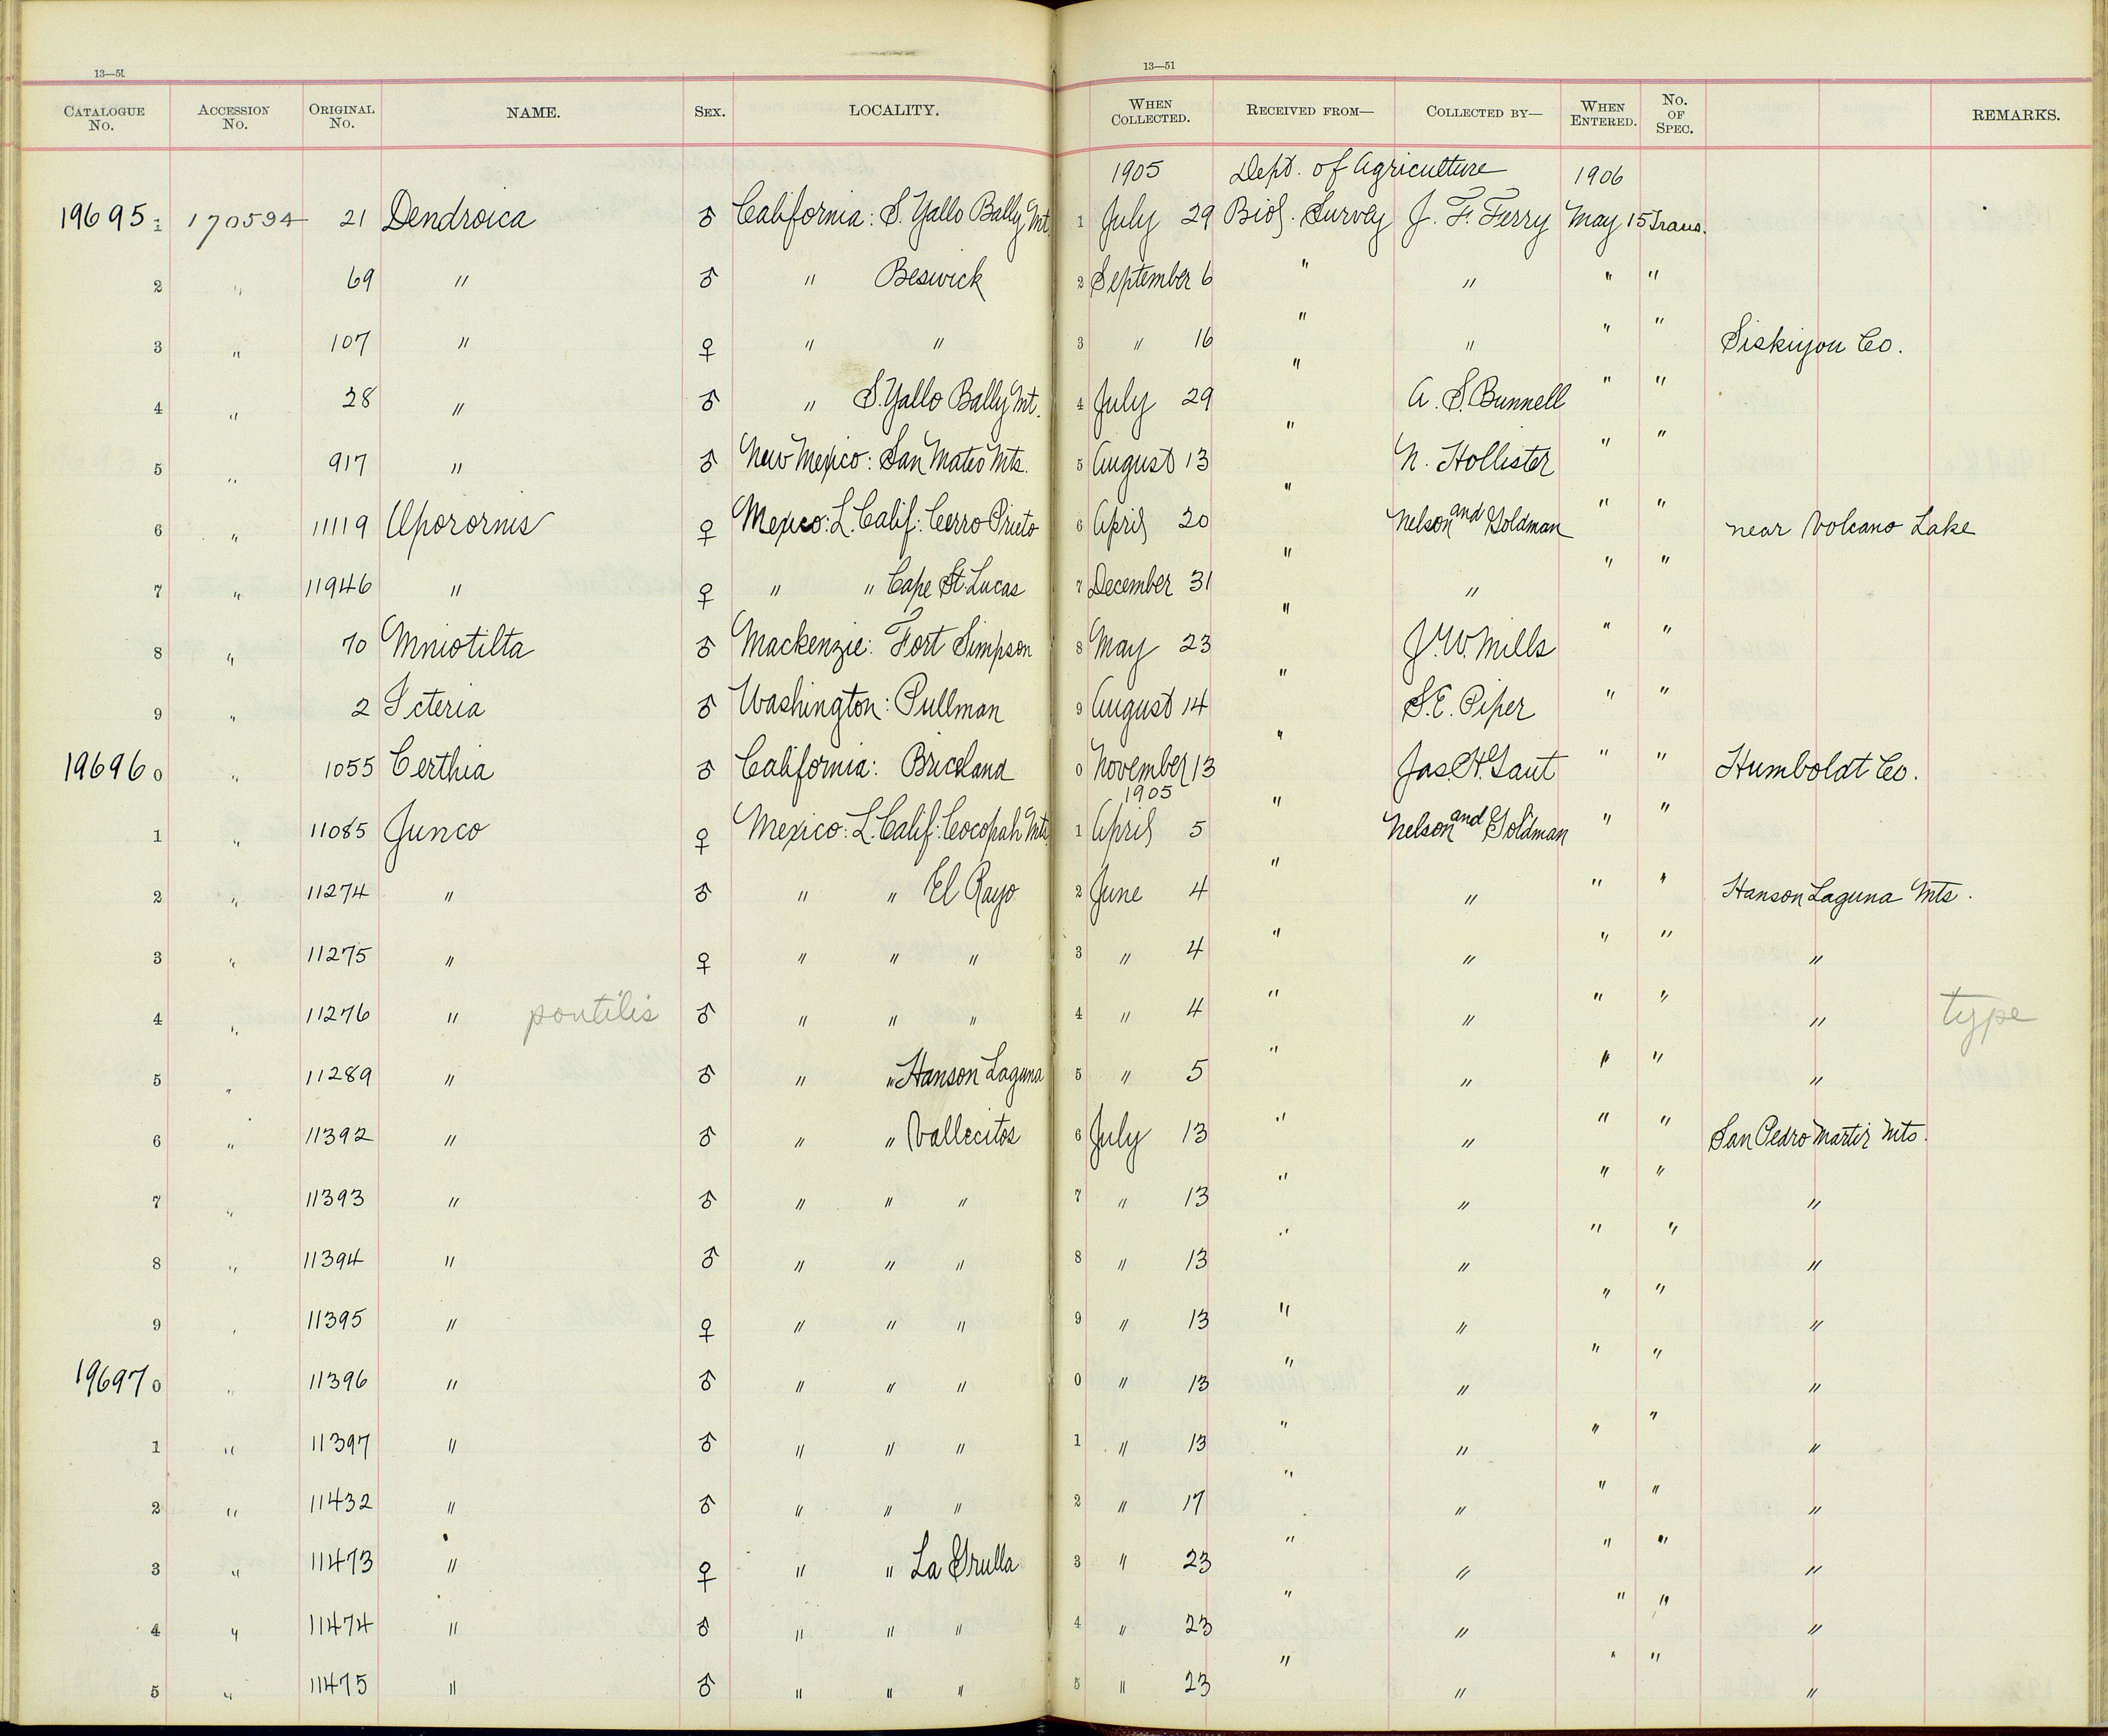 13—51
13—51
CATALOGUE No. ACCESSION No. ORIGINAL No. NAME. SEX. LOCALITY. WHEN COLLECTED. RECEIVED FROM— COLLECTED BY— WHEN ENTERED. No. OF SPEC. REMARKS.
1905 Dept. of Agriculture 1906
19695 1 170594 21 Dendroica ♂ California: S. Yallo Bally Mt. 1 July 29 Biol. Survey J. F. Ferry May 15 Trans.
2 " 69 " ♂ " Beswick 2 September 6 " " " "
3 " 107 " ♀ " " 3 " 16 " " " " Siskiyou Co.
4 " 28 " ♂ " S. Yallo Bally Mt. 4 July 29 " A. S. Bunnell " "
5 " 917 " ♂ New Mexico: San Mateo Mts. 5 August 13 " N. Hollister " "
6 " 11119 Oporornis ♀ Mexico: L. Calif: Cerro Prieto 6 April 20 " Nelson and Goldman " " near Volcano Lake
7 " 11946 " ♀ " " Cape St. Lucas 7 December 31 " " " "
8 " 70 Mniotilta ♂ Mackenzie: Fort Simpson 8 May 23 " J. W. Mills " "
9 " 2 Icteria ♂ Washington: Pullman 9 August 14 " S. E. Piper " "
19696 0 " 1055 Certhia ♂ California: Briceland 0 November 13 " Jas. H. Gaut " " Humboldt Co.
1905
1 " 11085 Junco ♀ Mexico: L. Calif: Cocopah Mts 1 April 5 " Nelson and Goldman " "
2 " 11274 " ♂ " " El Rayo 2 June 4 " " " " Hanson Laguna Mts.
3 " 11275 " ♀ " " " 3 " 4 " " " " "
4 " 11276 " pontilis ♂ " " " 4 " 4 " " " " " type
5 " 11289 " ♂ " " Hanson Laguna 5 " 5 " " " " "
6 " 11392 " ♂ " " Vallecitos 6 July 13 " " " " San Pedro Martir Mts.
7 " 11393 " ♂ " " " 7 " 13 " " " " "
8 " 11394 " ♂ " " " 8 " 13 " " " " "
9 " 11395 " ♀ " " " 9 " 13 " " " " "
19697 0 " 11396 " ♂ " " " 0 " 13 " " " " "
1 " 11397 " ♂ " " " 1 " 13 " " " " "
2 " 11432 " ♂ " " " 2 " 17 " " " " "
3 " 11473 " ♀ " " La Grulla 3 " 23 " " " " "
4 " 11474 " ♂ " " " 4 " 23 " " " " "
5 " 11475 " ♂ " " " 5 " 23 " " " " "